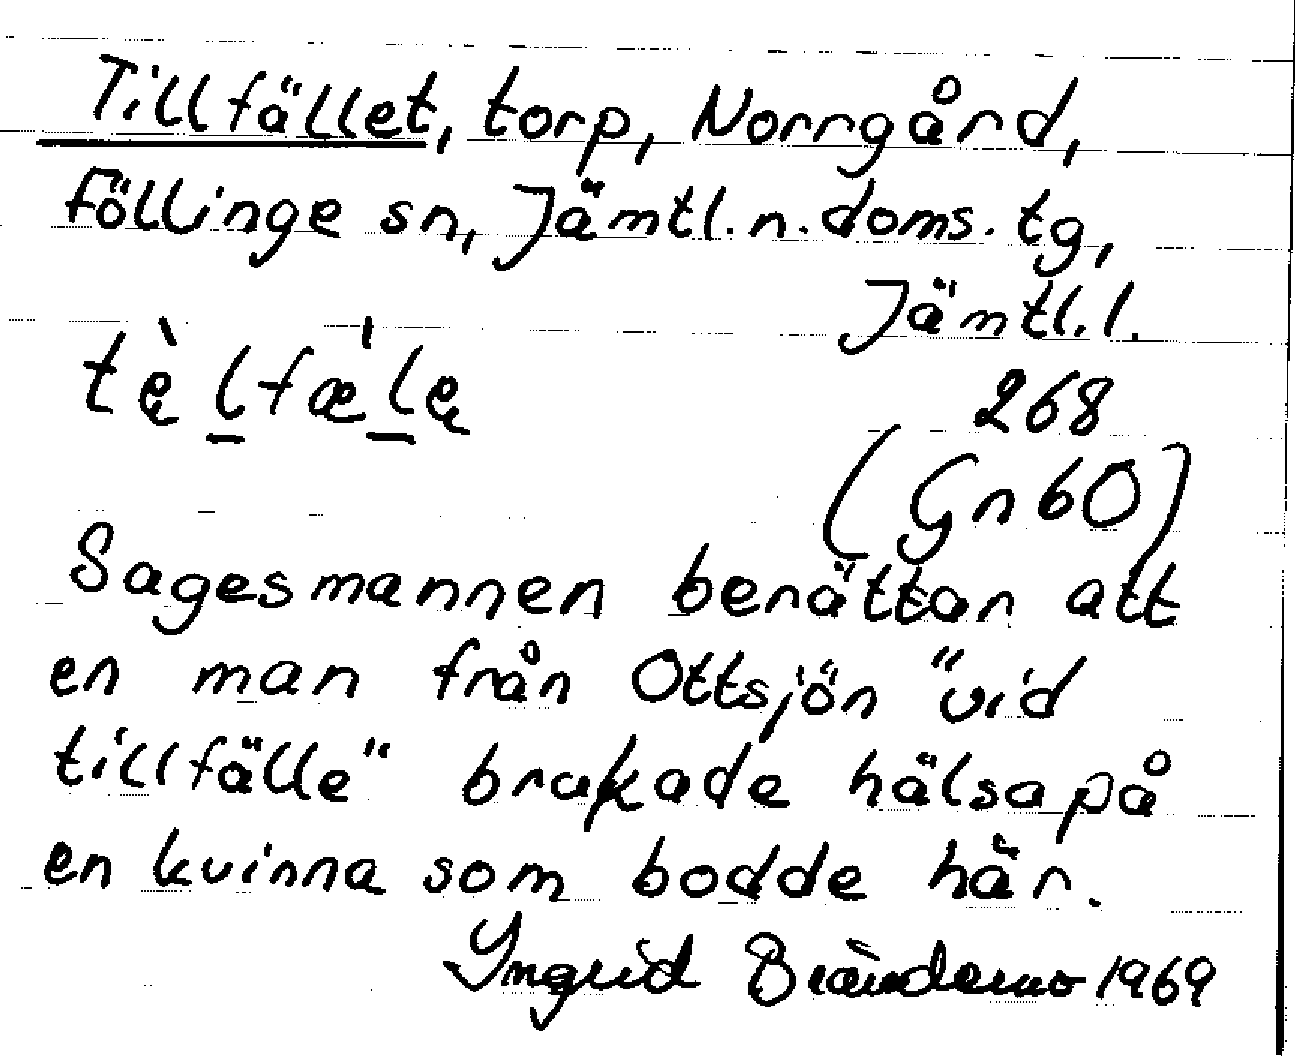 Tillfället, torp, Norrgård,
Föllinge sn, Jämtl. n. doms. tg,
Jämtl. l.
tę̀lfæ'lę
268
(Gn60)
Sagesmannen berättar att
en man från Ottsjön "vid
tillfälle" brukade hälsa på
en kvinna som bodde här.
Ingrid Brändemo 1969